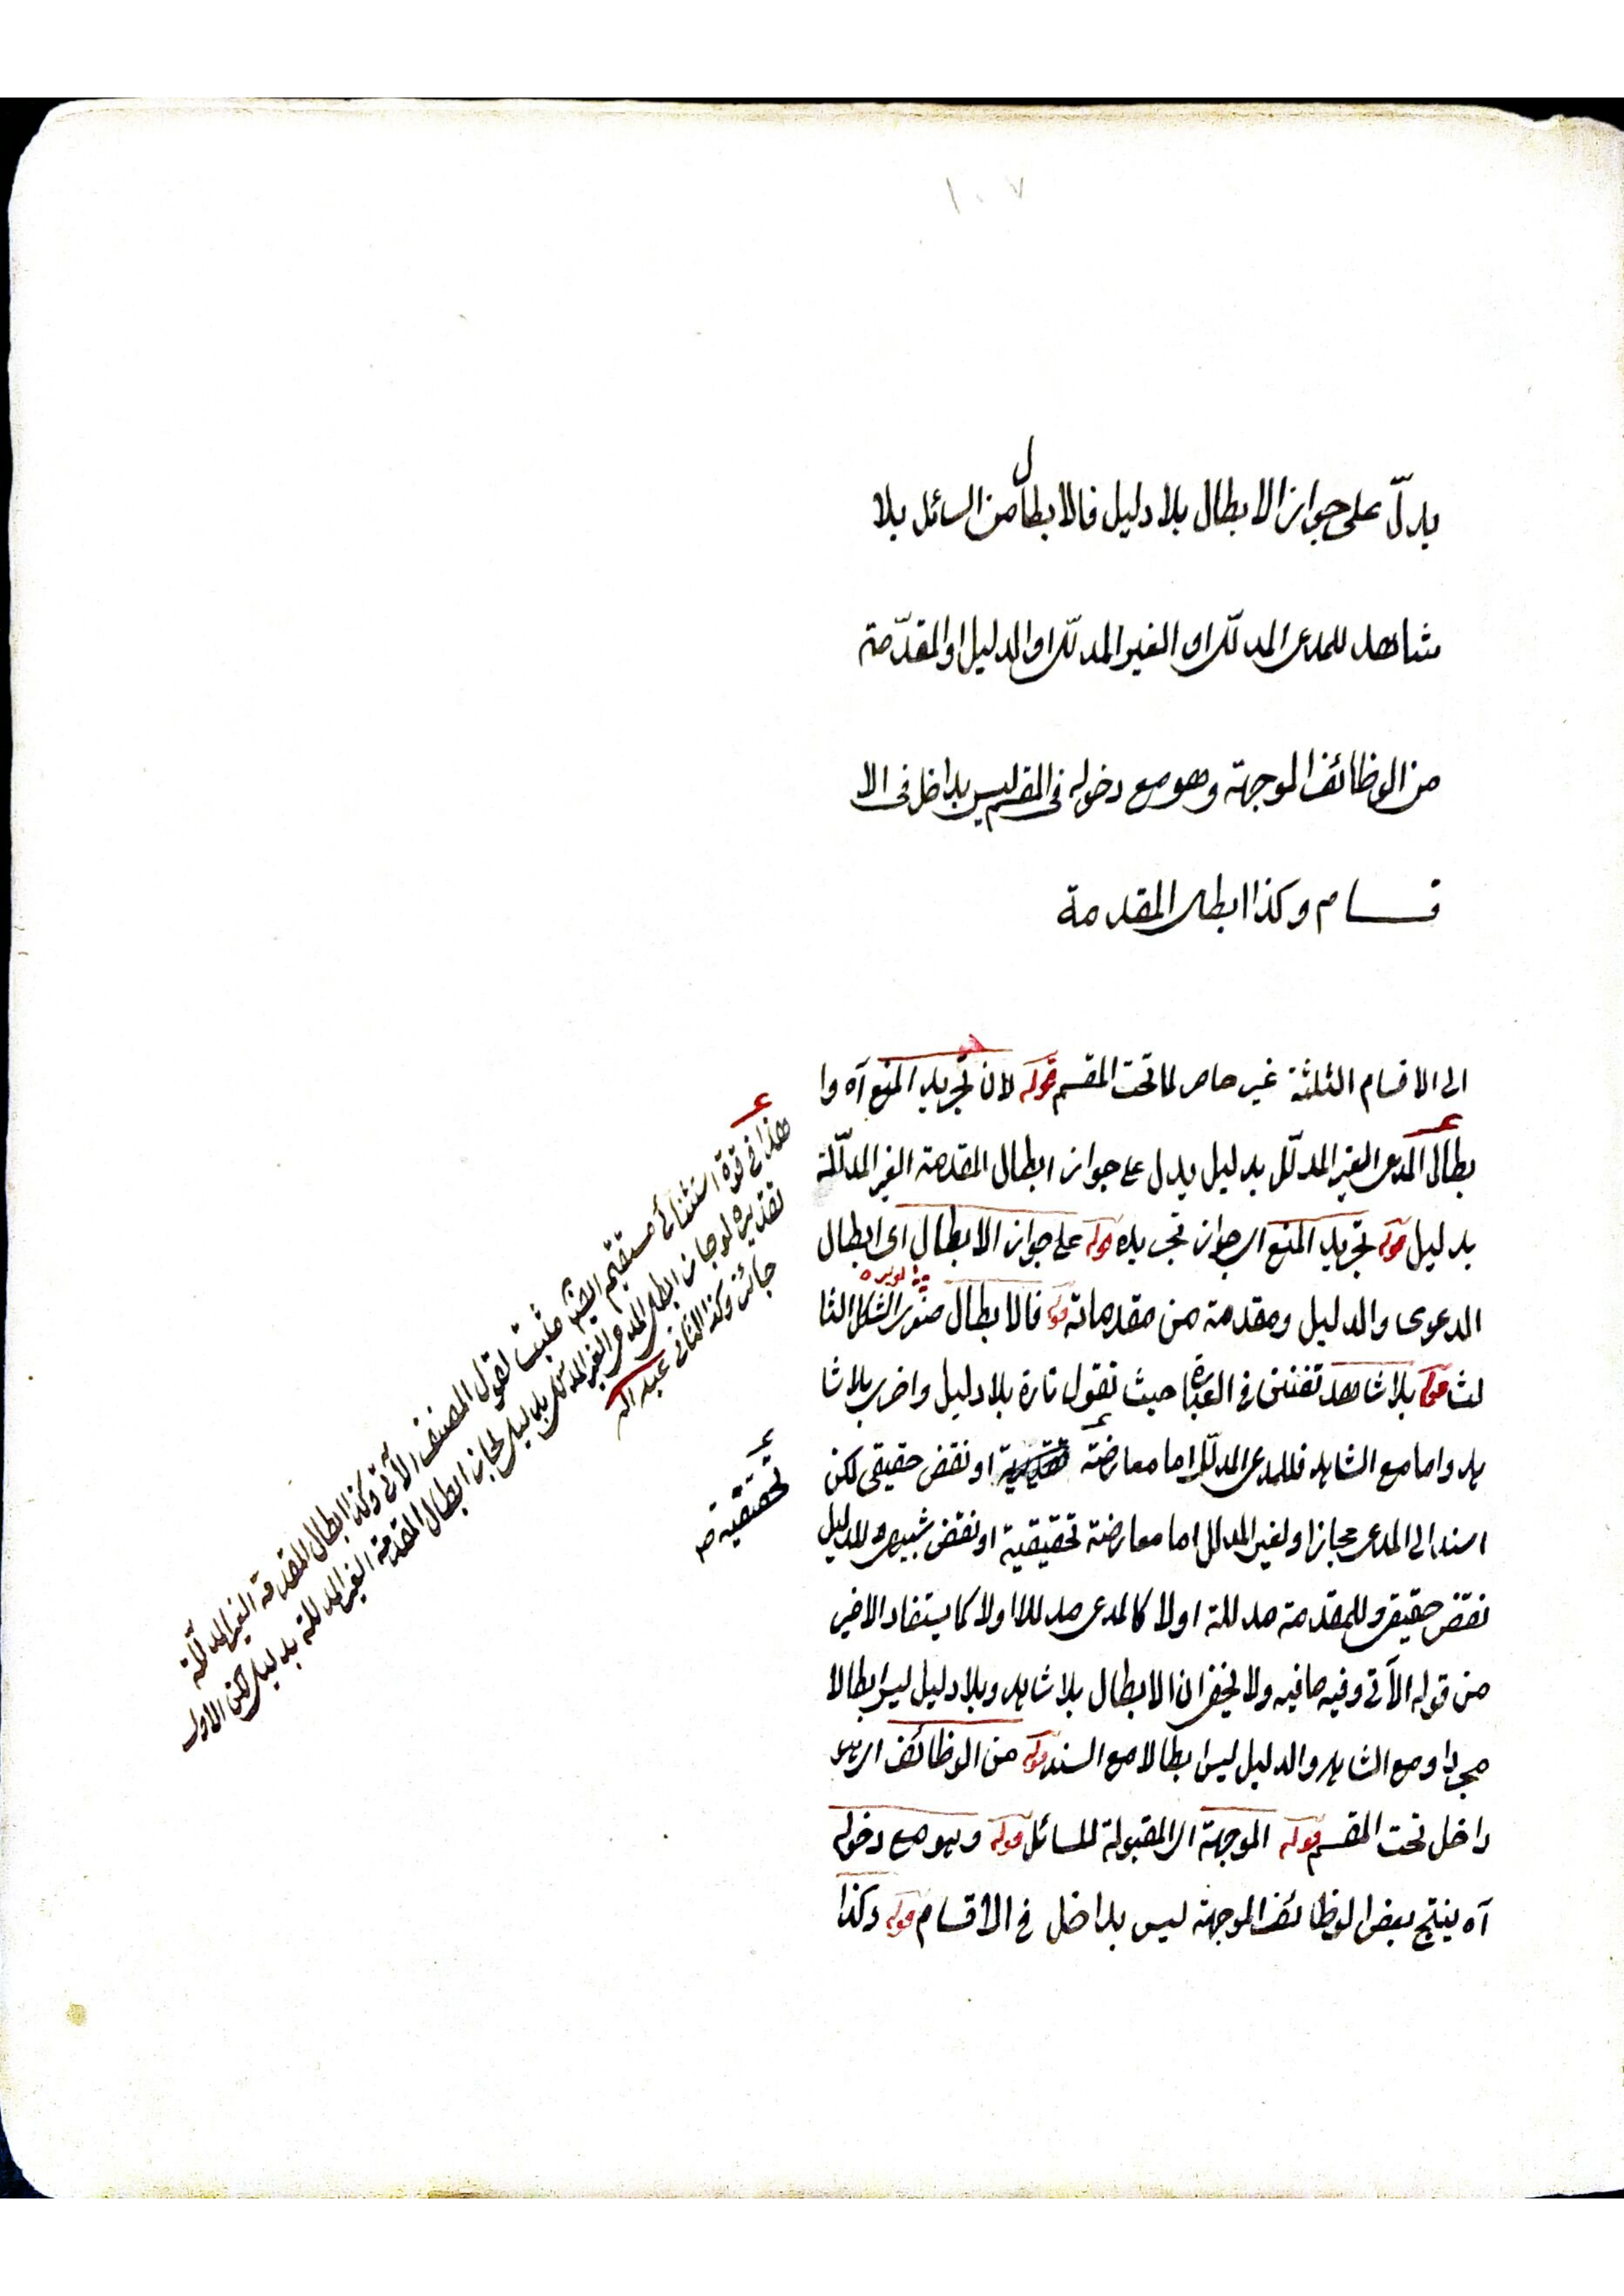 ١٠٧
يدلّ على جواز الابطال بلا دليل فالابطال من السائل بلا
شاهد للمدعى المدلّل او الغير المدلّل او الدليل او المقدّمة
من الوظائف الموجهة وهو مع دخوله فى المقسم ليس بداخل فى الا
قسام وكذا ابطال المقدمة
الى الاقسام الثلثة غير حاصر لما تحت المقسم قوله لان تجريد المنع آه وا
بطال المدعى الغير المدلّل بدليل يدل على جواز ابطال المقدمة الغير المدلّلة
بدليل قوله تجريد المنع اى جواز تجريده قوله على جواز الابطال اى ابطال
الدعوى والدليل ومقدمة من مقدماته قوله فالابطال صغرى الشكل الثا
لث قوله بلا شاهد تفنن فى العبارة حيث تقول تارة بلا دليل واخرى بلا شا
هد واما مع الشاهد فللمدعى المدلّل اما معارضة او نقض حقيقى لكن
اسند الى المدعى مجازا ولغير المدلل اما معارضة تحقيقية او نقض شبيهى للدليل
نقض حقيقى وللمقدمة مدللة اولا كالمدعى مدللا اولا كما يستفاد الاخير
من قوله الآتى وفيه ما فيه ولا يخفى ان الابطال بلا شاهد وبلا دليل ليس ابطالا
مجردا ومع الشاهد والدليل ليس ابطالا مع السند قوله من الوظائف اى
داخل تحت المقسم قوله الموجهة اى المقبولة للسائل قوله وهو مع دخوله
آه ينتج بعض الوظائف الموجهة ليس بداخل فى الاقسام قوله وكذا
هذا فى قوة استثنائى مستقيم مثبت لقول المصنف الآتى وكذا ابطال المقدمة الغير المدلّلة
تقديره لو جاز ابطال المدعى الغير المدلل بدليل لجاز ابطال المقدمة الغير المدللة بدليل لكن الاول
جائز وكذا الثانى عبد الله
تحقيقية صح